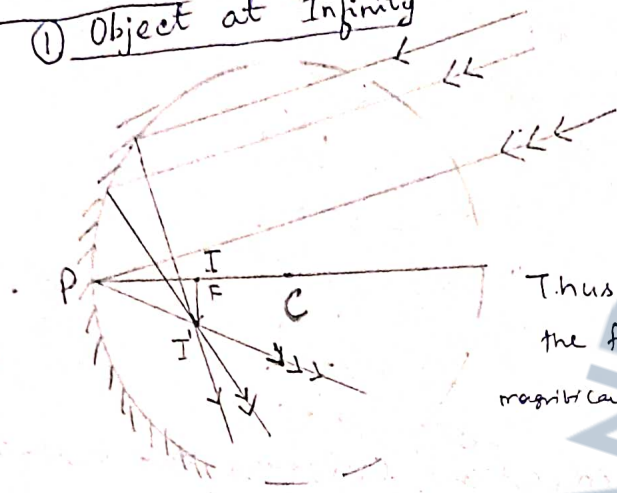 ① Object at Infinity
P
I
F
C
I'
Thus
the f
magnifica